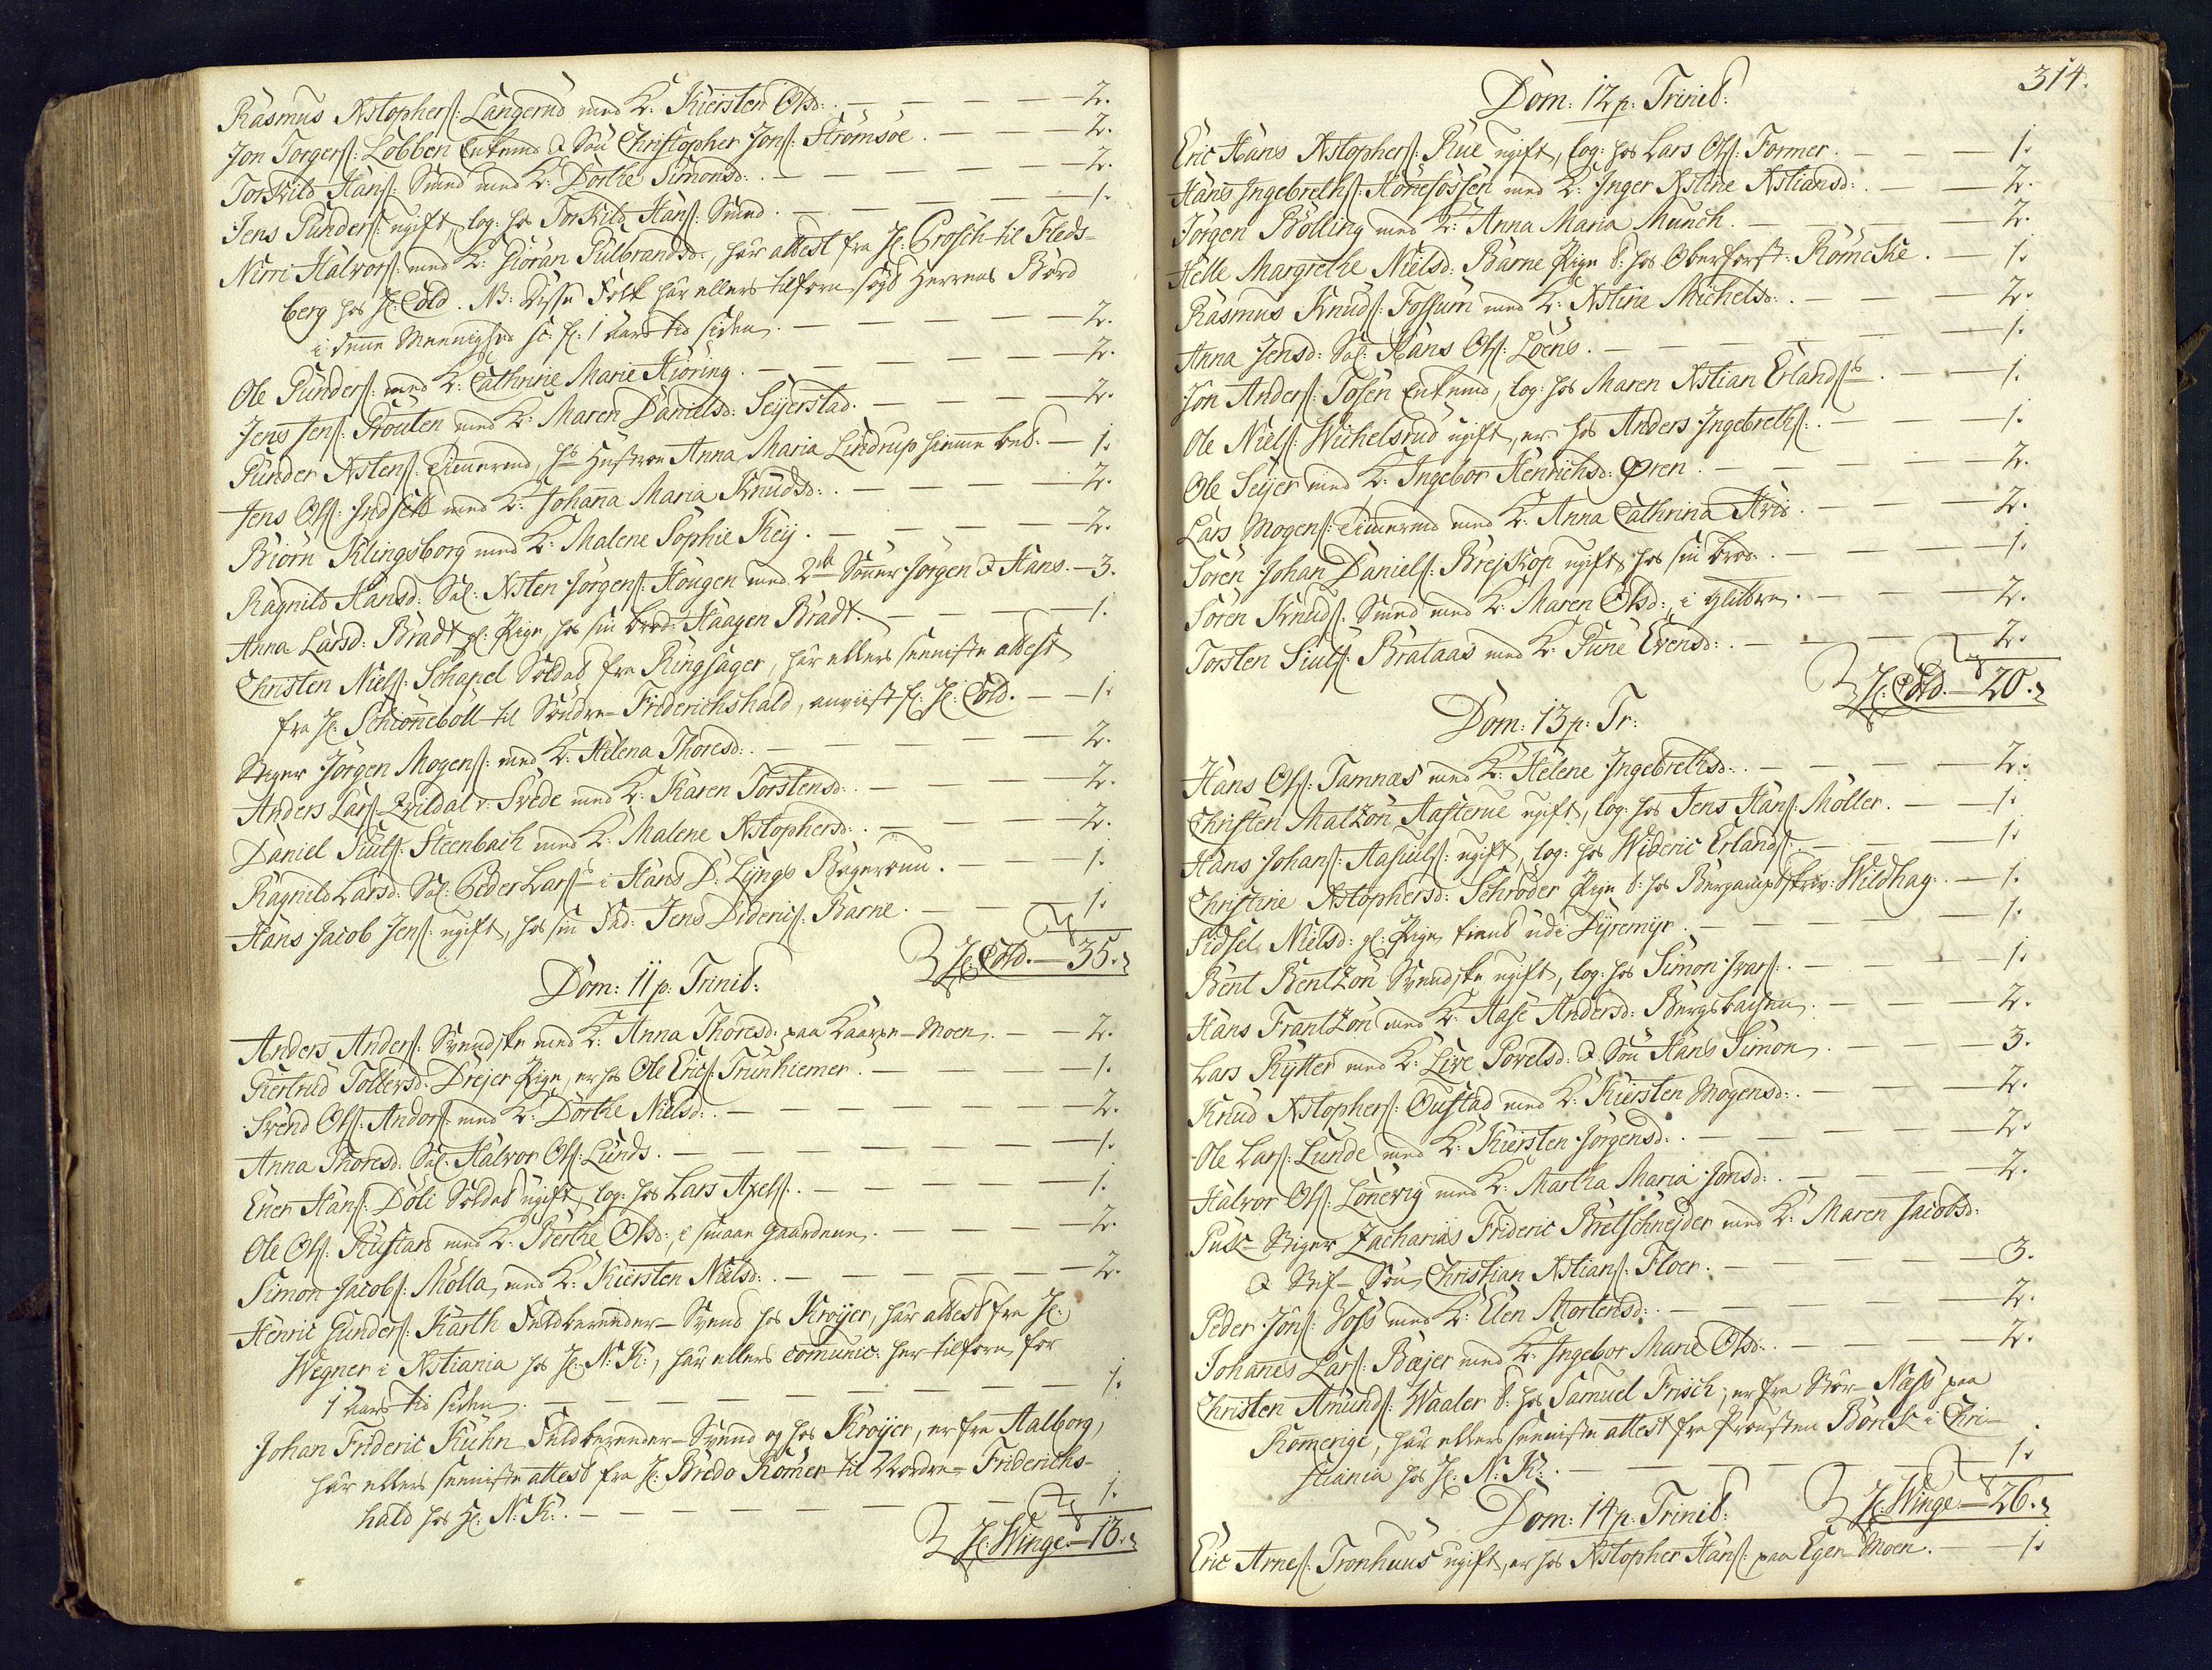 Rasmus Xstophers: Langerud med K: Kiersten Olsd: . — 2.
Jon Torgers: Lobben Enkemd & Søn Christopher Jons: Strømsöe . — 2.
Torkild Hans: Smed med K: Dorthe Simonsd: . — 2.
Jens Gunders: ugift, log: hos Torkild Hans: Smed . — 1.
Nirri Halvors: med K: Giöran Gulbrandsd:, har attest fra H: Grosch til Fleds-
berg hos H: Cold. NB: Disse Folk har ellers tilforn søgt Herrens Bord
i denne Meenighed for 1 Aars tid siden . — 2.
Ole Gunders: med K: Cathrine Marie Hiöring . — 2.
Jens Jens: Prouten med K: Maren Danielsd: Seijerstad . — 2.
Gunder Xstens: Tömermd, hs Hustroe Anna Maria Lindrup hiemme bet. — 1.
Jens Ols: Indset med K: Johanna Maria Knudsd: . — 2.
Biörn Klingsborg med K: Malene Sophie Keij . — 2.
Ragnild Hansd: Sal: Xsten Jörgens: Hougen med 2de Sönner Jörgen & Hans. — 3.
Anna Larsd: Bradt gl: Pige, hos sin Brod: Haagen Bradt. — 1.
Christen Niels: Schapel Soldat fra Ringsager, har ellers seeniste attest
fra H: Schiönneböll til Söndre-Friderichshald, anviist H: Cold. — 1.
Stiger Jörgen Mogens: med K: Helena Thoresd: . — 2.
Anders Lars: Qvildal v. Svede med K: Karen Torstensd: . — 2.
Daniel Siuls: Steenbach med K: Malene Xstophersd: . — 2.
Ragnild Larsd: Sal: Peder Lars: i Hans D: Lyngs Bageroum . — 1.
Hans Jacob Jens: ugift, hos sin Fad: Jens Diderics: Barne . — 1.
H: Cold. — 35.
Dom: 11 p: Trinit:
Anders Anders: Svendske med K: Anna Thoresd: paa Kaarpe-Moen . — 2.
Giertrud Tollersd: Drejer Pige, er hos Ole Erics: Trünhiemer . — 1.
Svend Ols: Andors: med K: Dorthe Nielsd: . — 2.
Anna Thoresd: Sal: Halvor Ols: Lunds . — 1.
Ener Hans: Döli Soldat ugift, log: hos Lars Axels: . — 1.
Ole Ols: Rustad med K: Berthe Olsd:, i smaae Gaardene . — 2.
Simon Jacobs: Molla, med K: Kiersten Nielsd: . — 2.
Henric Gunders: Karth Feldbereder-Svend hos Kröijer, har attest fra H:
Wegner i Xstiania hos H: N: K:, har ellers comunic: her tilforn for
1 Aars tid siden . — 1.
Johan Frideric Kuhn Feldbereder-Svend og hos Kröijer, er fra Aalborg,
har ellers seeniste attest fra H: Bredo Römer til Nordre-Friderichs-
hald hos H: N: K: . — 1.
H: Winge. — 13.
314.
Dom: 12 p: Trinit:
Eric Hans Xstophers: Rue ugift, log: hos Lars Ols: Former . — 1.
Hans Ingebreths: Hönefossen med K: Inger Xstine Xstiansd: . — 2.
Jörgen Bölling med K: Anna Maria Munch . — 2.
Helle Margrethe Nielsd: Barne Pige t: hos Oberforst: Römcke . — 1.
Rasmus Knuds: Fossum med K: Xstine Michelsd: . — 2.
Anna Jensd: Sal: Hans Ols: Loens . — 1.
Jon Anders: Tosen Enkemd, log: hos Maren Xstian Erlands: . — 1.
Ole Niels: Wichelsrud ugift, er hos Anders Ingebreths: . — 1.
Ole Seijer med K: Ingebor Henrichsd: Øren . — 2.
Lars Mogens: Tömermd med K: Anna Cathrina Avis . — 2.
Sören Johan Daniels: Brejskop ugift, hos sin Broder . — 1.
Sören Knuds: Smed med K: Maren Olsd: i Glitre . — 2.
Torsten Siuls: Brataas med K: Gune Evensd: . — 2.
H: Cold. — 20.
Dom: 13 p: Tr:
Hans Ols: Tamnæs med K: Helene Ingebrethsd: . — 2.
Christen Matzön Aasterue ugift, log: hos Jens Hans: Möller . — 1.
Hans Johans: Aasuls: ugift, log: hos Wideric Erlands: . — 1.
Christine Xstophersd: Schröder Pige t: hos Bergamptskriv: Wildhag . — 1.
Sidsel Nielsd: gl: Pige, træns udi Dyremyr . — 1.
Bent Bentzön Svendske ugift, log: hos Simon Ivars: . — 1.
Hans Frantzön med K: Aase Andersd: Bergsbachen . — 2.
Lars Rytter med K: Live Povelsd: & Søn Hans Simon . — 3.
Knud Xstophers: Oustad med K: Kiersten Mogensd: . — 2.
Ole Lars: Lunde med K: Kiersten Jörgensd: . — 2.
Halvor Ols: Lönevig med K: Martha Maria Jonsd: . — 2.
Puk-Stiger Zacharias Frideric Bretschnejder med K: Maren Jacobsd:
& Stif-Søn Christian Xstians: Floer . — 3.
Peder Jöns: Voss med K: Elen Mortensd: . — 2.
Johanes Lars: Bæjer med K: Ingebor Marie Olsd: . — 2.
Christen Amunds: Waaler t: hos Samuel Frisch, er fra Stor-Næss paa
Romerige, har ellers seeniste attest fra Provsten Borck i Chri-
stiania hos H: N: K: . — 1.
H: Winge — 26.
Dom: 14 p: Trinit:
Eric Arnes: Tronhuus ugift, er hos Xstopher Hans: paa Egen-Moen . — 1.